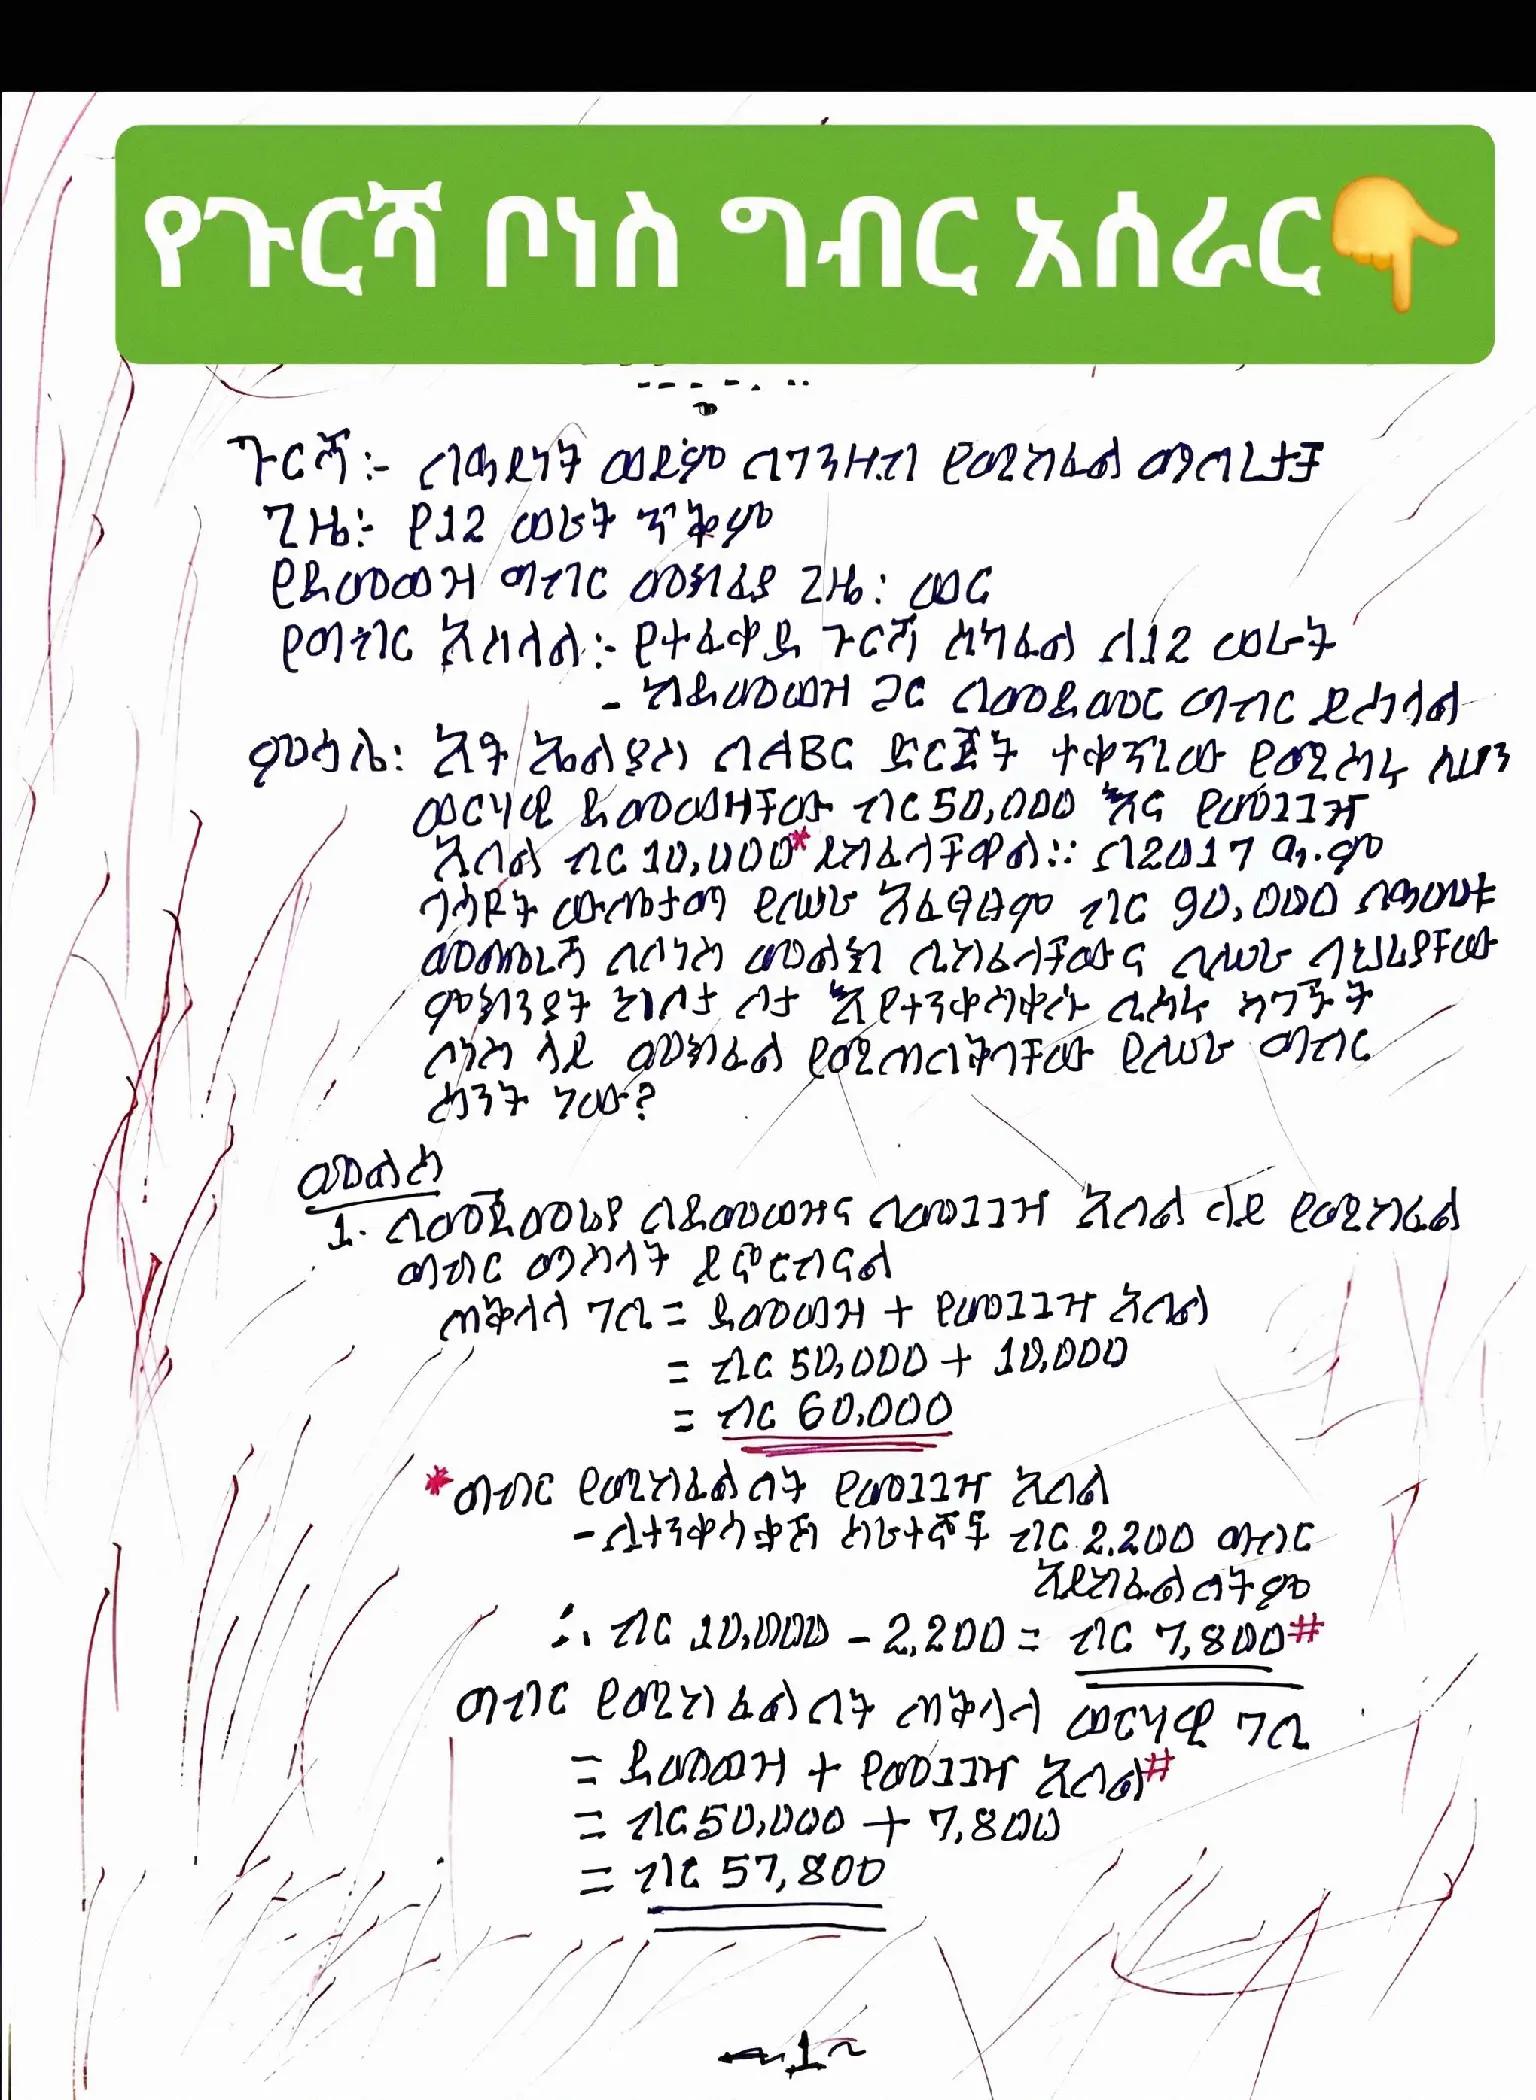 የጉርሻ ቦነስ ግብር አሰራር👇
ጉርሻ፡- በዓይነት ወይም በገንዘብ የሚከፈል ማበረታቻ
ጊዜ፡- የ12 ወራት ጥቅም
የደመወዝ ግብር መክፈያ ጊዜ፡ ወር
የግብር አከፋፈል፡- የተፈቀደ ጉርሻ ሲካፈል ለ12 ወራት
- ከደመወዝ ጋር በመደመር ግብር ይሰላል
ምሳሌ፡ አቶ ኤልያስ በABC ድርጅት ተቀጥረው የሚሰሩ ሲሆን
ወርሃዊ ደመወዛቸው ብር 50,000 እና የመጓጓዣ
አበል ብር 10,000* ይከፈላቸዋል፡፡ በ2017 ዓ.ም
ላሳዩት ውጤታማ የሥራ አፈፃፀም ብር 90,000 በዓመቱ
መጨረሻ በቦነስ መልክ ቢከፈላቸውና በሥራ ባህሪያቸው
ምክንያት ከቦታ ቦታ እየተንቀሳቀሱ ቢሰሩ ካገኙት
ቦነስ ላይ መክፈል የሚጠበቅባቸው የሥራ ግብር
ስንት ነው?
መልስ
1. በመጀመሪያ በደመወዝና በመጓጓዣ አበል ላይ የሚከፈል
ግብር ማስላት ይኖርብናል
ጠቅላላ ገቢ = ደመወዝ + የመጓጓዣ አበል
= ብር 50,000 + 10,000
= ብር 60,000
*ግብር የሚከፈልበት የመጓጓዣ አበል
- ለተንቀሳቃሽ ሰራተኞች ብር 2,200 ግብር
አይከፈልበትም
∴ ብር 10,000 - 2,200 = ብር 7,800#
ግብር የሚከፈልበት ጠቅላላ ወርሃዊ ገቢ
= ደመወዝ + የመጓጓዣ አበል#
= ብር 50,000 + 7,800
= ብር 57,800
~1~